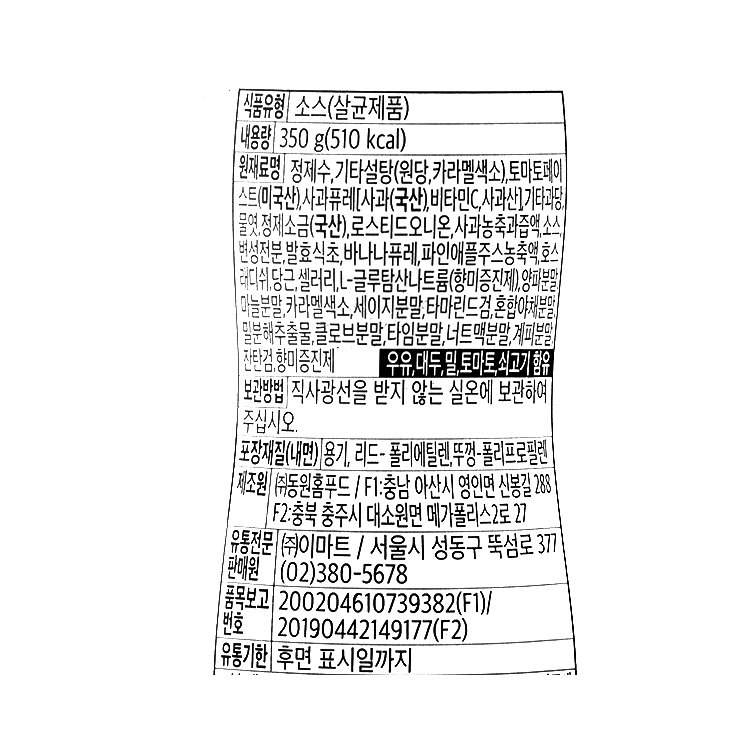 식품유형 소스(살균제품)
내용량 350 g(510 kcal)
원재료명 정제수,기타설탕(원당,카라멜색소),토마토페이
스트(미국산),사과퓨레[사과(국산),비타민C,사과산],기타과당,
물엿,정제소금(국산),로스티드오니온,사과농축과즙액,소스,
변성전분,발효식초,바나나퓨레,파인애플주스농축액,호스
래디쉬,당근,셀러리,L-글루탐산나트륨(향미증진제),양파분말,
마늘분말,카라멜색소,세이지분말,타마린드검,혼합야채분말,
밀분해추출물,클로브분말,타임분말,너트맥분말,계피분말,
잔탄검,향미증진제 우유,대두,밀,토마토,쇠고기 함유
보관방법 직사광선을 받지 않는 실온에 보관하여
주십시오.
포장재질(내면) 용기, 리드- 폴리에틸렌,뚜껑-폴리프로필렌
제조원 ㈜동원홈푸드 / F1:충남 아산시 영인면 신봉길 288
F2:충북 충주시 대소원면 메가폴리스2로 27
유통전문 ㈜이마트 / 서울시 성동구 뚝섬로 377
판매원 (02)380-5678
품목보고 200204610739382(F1)/
번호 20190442149177(F2)
유통기한 후면 표시일까지